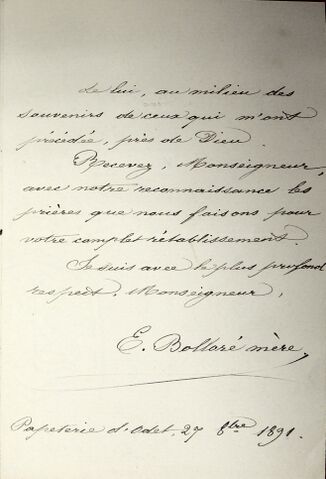 de lui, au milieu des
souvenirs de ceux qui m'ont
précédée, près de Dieu.
Recevez, Monseigneur,
avec notre reconnaissance les
prières que nous faisons pour
votre complet rétablissement.
Je suis avec le plus profond
respect, Monseigneur,
E. Bolloré mère,
Papeterie d'Odet, 27 8bre 1891.